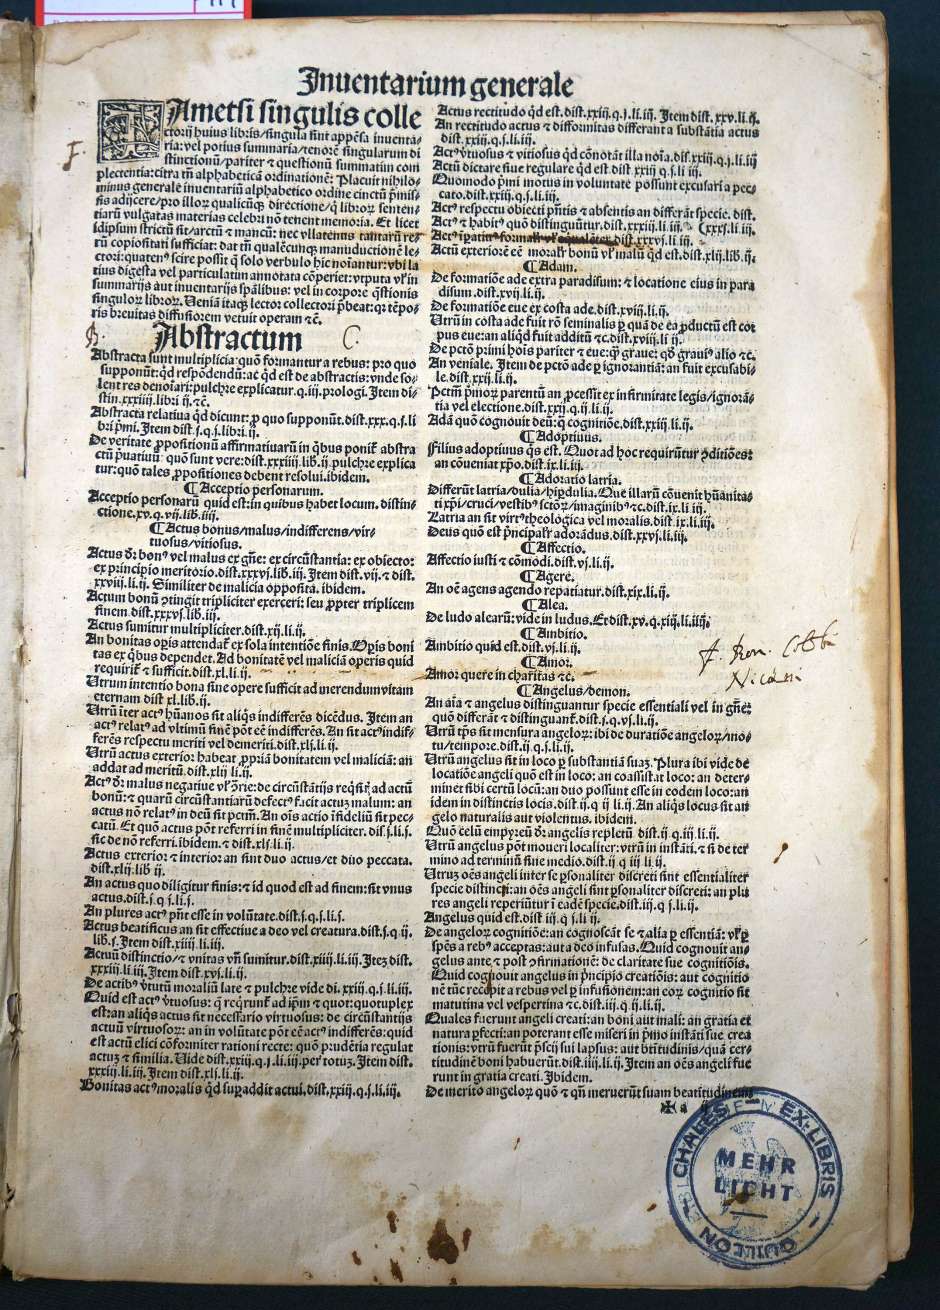 Inuentarium generale
Tametsi singulis colle
ctorij huius libris/singula sint appēsa inuenta-
ria: vel potius summaria/tenorē singularum di
stinctionū/pariter & questionū summatim com
plectentia: citra tñ alphabeticā ordinationē: Placuit nihilo-
minus generale inuentariū alphabetico ordine cinctū p̄mis-
sis adijcere/pro illoꝝ qualicūqꝫ directione/q̇ libroꝝ senten-
tiarū vulgatas materias celebri nō tenent memoria. Et licet
idipsum strictū sit/arctū & mancū: nec vllatenus tantarū re-
rū copiositati sufficiat: dat tñ qualēcunqꝫ manuductionē le-
ctori: quaten⁹ scire possit q̇ solo verbulo hic noīantur: vbi la
tius digesta vel particulatim annotata cōperiet: vtputa vł in
summarijs aut inuentarijs sp̄alibus: vel in corpore q̄stionis
singuloꝝ libroꝝ. Veniā itaqꝫ lector collectori p̄beat: qꝛ tēpo-
ris breuitas diffusiorem vetuit operam &c̄.
Abstractum
Abstracta sunt multiplicia: quō formantur a rebus: pro quo
supponūt: q̇d respōdendū: ac q̇d est de abstractis: vnde so-
lent res denoīari: pulchre explicatur. q. iij. prologi. Item di-
stin. xxxiiij. libri ij. &c̄.
Abstracta relatiua q̇d dicunt: p̱ quo supponūt. dist. xxx. q. s. li
bri p̄mi. Item dist. j. q. j. libri. ij.
De veritate p̱positionū affirmatiuarū in q̇bus ponit abstra
ctū p̱uatiuū quō sunt vere: dist. xxxiiij. lib. ij. pulchre explica
tur: quō tales p̱positiones debent resolui. ibidem.
¶ Acceptio personarum.
Acceptio personarū quid est: in quibus habet locum. distin-
ctione. xv. q. vij. lib. iiij.
¶ Actus bonus/malus/indifferens/vir-
tuosus/vitiosus.
Actus dr̄ bon⁹ vel malus ex gn̄e: ex circūstantia: ex obiecto:
ex principio meritorio. dist. xxxvj. lib. iij. Item dist. vij. & dist.
xxviij. li. ij. Similiter de malicia opposita. ibidem.
Actum bonū ꝯtingit tripliciter exerceri: seu p̱pter triplicem
finem. dist. xxxvj. lib. iij.
Actus sumitur multipliciter. dist. xij. li. ij.
An bonitas op̱is attendat̄ ex sola intentiōe finis. Op̱is boni
tas ex q̇bus dependet. Ad bonitatē vel maliciā operis quid
requirit̄ & sufficit. dist. xl. li. ij.
Utrum intentio bona sine opere sufficit ad merendum vitam
eternam dist xl. lib. ij.
Utrū īter act⁹ hūanos sit aliq̇s indifferēs dicēdus. Item an
act⁹ relat⁹ ad vltimū finē pōt eē indifferēs. An sit act⁹ indif-
ferēs respectu meriti vel demeriti. dist. xlj. li. ij.
Utrū actus exterior habeat p̱priā bonitatem vel maliciā: an
addat ad meritū. dist. xlij li. ij.
Act⁹ dr̄ malus negatiue vł ꝯ̄rie: de circūstātijs reqsit̄ ad actū
bonū: & quarū circūstantiarū defect⁹ facit actuꝫ malum: an
actus nō relat⁹ in deū sit pctm̄. An oīs actio īfideliū sit pec-
catū. Et quō actus pōt referri in finē multipliciter. dis. j. li. s.
sic de nō referri. ibidem. & dist. xlj. li. ij.
Actus exterior & interior an sint duo actus/et duo peccata.
dist. xlij. lib ij.
An actus quo diligitur finis: & id quod est ad finem: sit vnus
actus. dist. j. q. j. li. j.
An plures act⁹ pn̄t esse in volūtate. dist. j. q. j. li. j.
Actus beatificus an sit effectiue a deo vel creatura. dist. j. q ij.
lib. s. Item dist. xiiij. li. iij.
Actuū distinctio/& vnitas vn̄ sumitur. dist. xiiij. li. iij. Iteꝫ dist.
xxxiij. li. iij. Item dist. xvj. li. ij.
De actib⁹ v̇tutū moraliū late & pulchre vide di. xxiij. q. j. li. iij.
Quid est act⁹ v̇tuosus: q̄ req̇runt̄ ad ip̄m & quot: quotuplex
est: an aliq̇s actus sit necessario virtuosus: de circūstantijs
actuū virtuosoꝝ: an in volūtate pōt eē act⁹ indifferēs: quid
est actū elici cōformiter rationi recte: quō prudētia regulat
actuꝫ & similia. Vide dist. xxiij. q. j. li. iij. per totuꝫ. Item dist.
xxxiij. li. iij. Item dist. xlj. li. ij.
Bonitas act⁹ moralis q̇d supaddit actui. dist. xxiij. q. j. li. iij.
Actus rectitudo q̇d est. dist. xxiij. q. j. li. iij. Item dist. xxv. li. ij.
An rectitudo actus & difformitas differant a substātia actus
dist. xxiij. q. j. li. iij.
Act⁹ v̇tuosus & vitiosus q̇d cōnotāt illa noīa. dis. xxiij. q. j. li. iij
Actū dictare siue regulare q̇d est. dist xxiij q. j. li iij.
Quomodo p̄mi motus in voluntate possunt excusari a pec-
cato. dist. xxiij. q. j. li. iij.
Act⁹ respectu obiecti p̄ntis & absentis an differāt specie. dist.
Act⁹ & habit⁹ quō distinguūtur. dist. xxxiij. li. iij. (xxxj. li. iij.
Actū exteriorē eē moral̄r bonū vł malū q̇d est. dist. xlij. lib. ij.
¶ Adam.
De formatiōe ade extra paradisum: & locatione eius in para
disum. dist. xvij. li. ij.
De formatiōe eue ex costa ade. dist. xviij. li. ij.
Utrū in costa ade fuit rō seminalis p̱ quā de ea p̱ductū est cor
pus eue: an aliq̇d fuit additū &c. dist. xviij. li. ij.
De pctō primi hoīs pariter & eue: q̇ graue: q̇d graui⁹ alio &c.
An veniale. Item de pctō ade p̱ ignorantiā: an fuit excusabi-
le. dist. xxij. li. ij.
Pctm̄ p̄moꝝ parentū an p̱cessit ex infirmitate legis/ignorā-
tia vel electione. dist. xxij. q. ij. li. ij.
Adā quō cognouit deū: q̇ cognitiōe. dist. xxiij. li. ij.
¶ Adoptiuus.
Filius adoptiuus q̇s est. Quot ad hoc requirūtur ꝯditiōes:
an cōueniat xp̄o. dist. ix. li. iij.
¶ Adoratio latria.
Differūt latria/dulia/hip̱dulia. Que illarū cōuenit hūanita-
ti xp̄i/cruci/vestib⁹ sctōꝝ/imaginib⁹ &c. dist. ix. li iij.
Latria an sit virt⁹ theologica vel moralis. dist. ix. li. iij.
Deus quō est p̄ncipal̄r adorādus. dist. xxvj. li. iij.
¶ Affectio.
Affectio iusti & cōmodi. dist. vj. li. ij.
¶ Agere.
An oē agens agendo repatiatur. dist. xix. li. ij.
¶ Alea.
De ludo alearū: vide in ludus. Et dist. xv. q. xiij. li. iiij.
¶ Ambitio.
Ambitio quid est. dist. vj. li. ij.
¶ Amor.
Amor quere in charitas &c.
¶ Angelus/demon.
An aīa & angelus distinguantur specie essentiali vel in gn̄e:
quō differāt & distinguant̄. dist. j. q. vj. li. ij.
Utrū tp̄s sit mensura angeloꝝ: ibi de duratiōe angeloꝝ/mo-
tu/tempore. dist ij. q. j. li. ij.
Utrū angelus sit in loco p̱ substantiā suaꝫ. Plura ibi vide de
locatiōe angeli quō est in loco: an coassistat loco: an deter-
minet sibi certū locū: an duo possunt esse in eodem loco: an
idem in distinctis locis. dist. ij. q ij li. ij. An aliq̇s locus sit an
gelo naturalis aut violentus. ibidem.
Quō celū empyreū dr̄ angelis repletū dist ij q. iij. li. ij.
Utrū angelus pōt moueri localiter: vtrū in instāti. & si de ter
mino ad terminū sine medio. dist. ij q iij li. ij.
Utruꝫ oēs angeli inter se p̱sonaliter discreti sint essentialiter
specie distincti: an oēs angeli sint p̱sonaliter discreti: an plu
res angeli reperiūtur ī eadē specie. dist. iij. q j. li. ij.
Angelus quid est. dist iij q j li ij.
De angeloꝝ cognitiōe: an cognoscāt se & alia p̱ essentiā: vł p̱
sp̄es a reb⁹ acceptas: aut a deo infusas. Quid cognouit an-
gelus ante & post ꝯfirmationē: de claritate sue cognitiōis.
Quid cognouit angelus in p̄ncipio creatiōis: aut cognitio
nē tūc recepit a rebus vel p̱ infusionem: an eoꝝ cognitio sit
matutina vel vespertina &c. dist. iij. q ij. li. ij.
Quales fuerunt angeli creati: an boni aut mali: an gratia et
natura p̱fecti: an poterant esse miseri in p̄mo instāti sue crea
tionis: vtrū fuerūt p̱scij sui lapsus: aut btītudinis/quā cer-
titudinē boni habuerūt. dist. iiij. li. ij. Item an oēs angeli fue
runt in gratia creati. Ibidem.
De merito angeloꝝ quō & qn̄ meruerūt suam beatitudinem
✠ a ij
F.
B.
C.
EX-LIBRIS
MEHR
LICHT